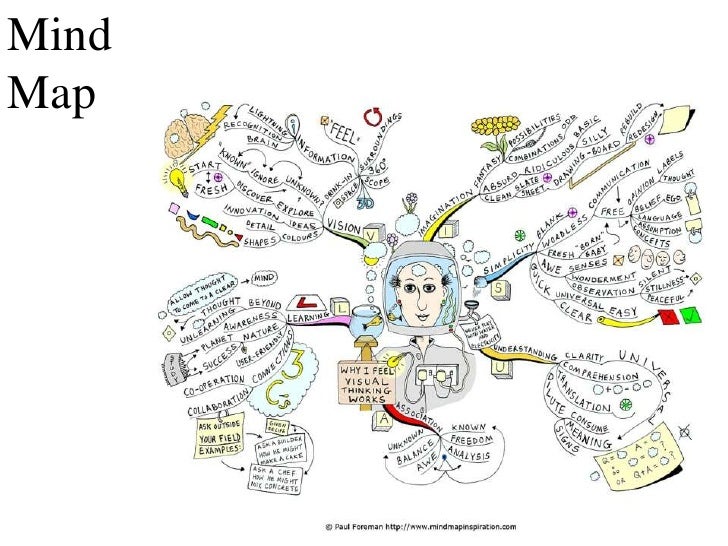 Mind
Map
LIGHTNING
RECOGNITION
BRAIN
INFORMATION
"FEEL"
SURROUNDINGS
360°
SCOPE
DRINK-IN
SPACE
3D
"KNOWN"
IGNORE
UNKNOWN
START
FRESH
DISCOVER
EXPLORE
INNOVATION
IDEAS
DETAIL
SHAPES
COLOURS
VISION
V
IMAGINATION
I
FANTASY
POSSIBILITIES
COMBINATIONS
ODD
ABSURD
RIDICULOUS
BASIC
SILLY
CLEAN
SLATE
SHEET
DRAWING-BOARD
REBUILD
REDESIGN
SIMPLICITY
S
BLANK
WORDLESS
COMMUNICATION
FREE
OPINION
LABELS
THOUGHT
BELIEF
EGO
LANGUAGE
ASSUMPTION
FRESH
"BORN"
BABY
AWE
SENSES
WONDERMENT
OBSERVATION
SILENT
STILLNESS
PEACEFUL
QUICK
UNIVERSAL
EASY
CLEAR
ALLOW THOUGHT
TO COME TO A CLEAR
MIND
THOUGHT
BEYOND
UNLEARNING
AWARENESS
PLANET
NATURE
SUCCESS
USER-FRIENDLY
CO-OPERATION
CONNECTIONS
COLLABORATION
LEARNING
L
L
3
C
ASK OUTSIDE
YOUR FIELD
EXAMPLES:
ASK A BUILDER
HOW HE MIGHT
MAKE A CAKE
ASK A CHEF
HOW HE MIGHT
MIX CONCRETE
WHY I FEEL
VISUAL
THINKING
WORKS
A
ASSOCIATION
UNKNOWN
BALANCE
AWE
KNOWN
FREEDOM
ANALYSIS
UNDERSTANDING
U
CLARITY
COMPREHENSION
UNIVERSAL
TRANSLATION
DILUTE
CONSUME
MEANING
SIGNS
© Paul Foreman http://www.mindmapinspiration.com